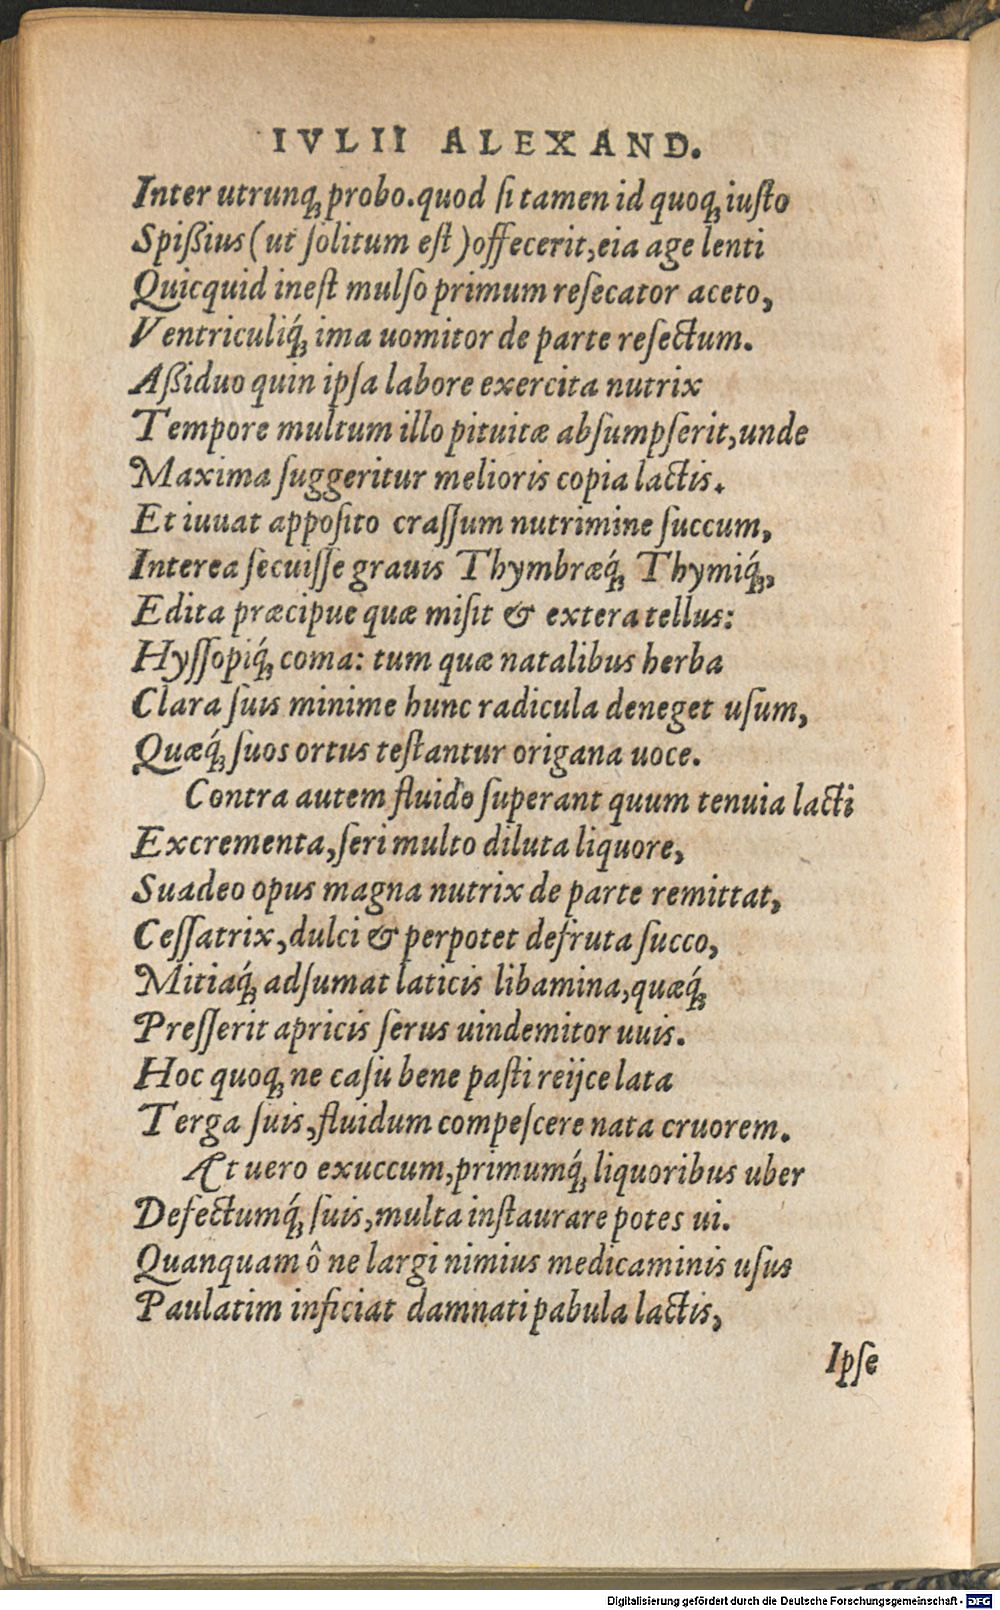 IVLII ALEXAND.
Inter utrunq; probo. quod ſi tamen id quoq; iuſto
Spißius (ut ſolitum eſt) offecerit, eia age lenti
Quicquid ineſt mulſo primum reſecator aceto,
Ventriculiq́; ima uomitor de parte reſectum.
Aßiduo quin ipſa labore exercita nutrix
Tempore multum illo pituitæ abſumpſerit, unde
Maxima ſuggeritur melioris copia lactis.
Et iuuat appoſito craſſum nutrimine ſuccum,
Interea ſecuiſſe grauis Thymbræq́; Thymiq́;,
Edita præcipue quæ miſit & extera tellus:
Hyſſopiq́; coma: tum quæ natalibus herba
Clara ſuis minime hunc radicula deneget uſum,
Quæq́; ſuos ortus teſtantur origana uoce.
Contra autem fluido ſuperant quum tenuia lacti
Excrementa, ſeri multo diluta liquore,
Suadeo opus magna nutrix de parte remittat,
Ceſſatrix, dulci & perpotet defruta ſucco,
Mitiaq́; adſumat laticis libamina, quæq́;
Preſſerit apricis ſerus uindemitor uuis.
Hoc quoq; ne caſu bene paſti reijce lata
Terga ſuis, fluidum compeſcere nata cruorem.
At uero exuccum, primumq́; liquoribus uber
Defectumq́; ſuis, multa inſtaurare potes ui.
Quanquam ô ne largi nimius medicaminis uſus
Paulatim inficiat damnati pabula lactis,
Ipſe
Digitalisierung gefördert durch die Deutsche Forschungsgemeinschaft - DFG